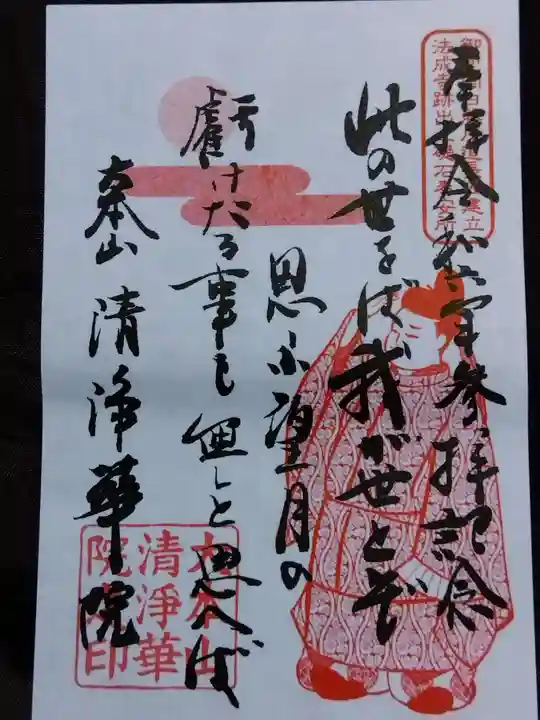 奉拝 令和六年参拝記念
此の世をば我が世とぞ
思ふ望月の
虧けたる事も無しと思へば
大本山 清浄華院
法成寺跡出
立
大本山
清浄華
院
印